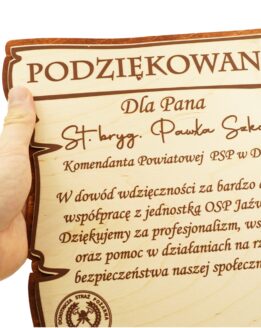 PODZIĘKOWAN
Dla Pana
St. bryg. Pawła
Komendanta Powiatowej PSP w D
W dowód wdzięczności za bardzo d
współpracę z jednostką OSP Jaźw
Dziękujemy za profesjonalizm, ws
oraz pomoc w działaniach na rz
bezpieczeństwa naszej społeczn
OCHOTNICZA STRAŻ POŻARNA